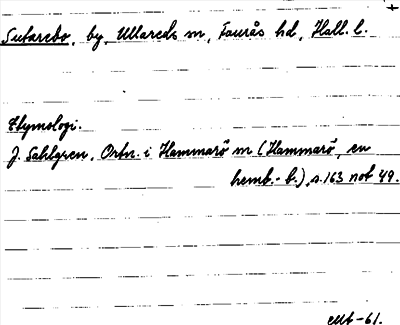 Sutarebo, by, Ullareds sn, Faurås hd, Hall. l.
Etymologi.
J. Sahlgren, Ortn. i Hammarö sn (Hammarö, en
hemb.-b.), s. 163 not 49.
-61.